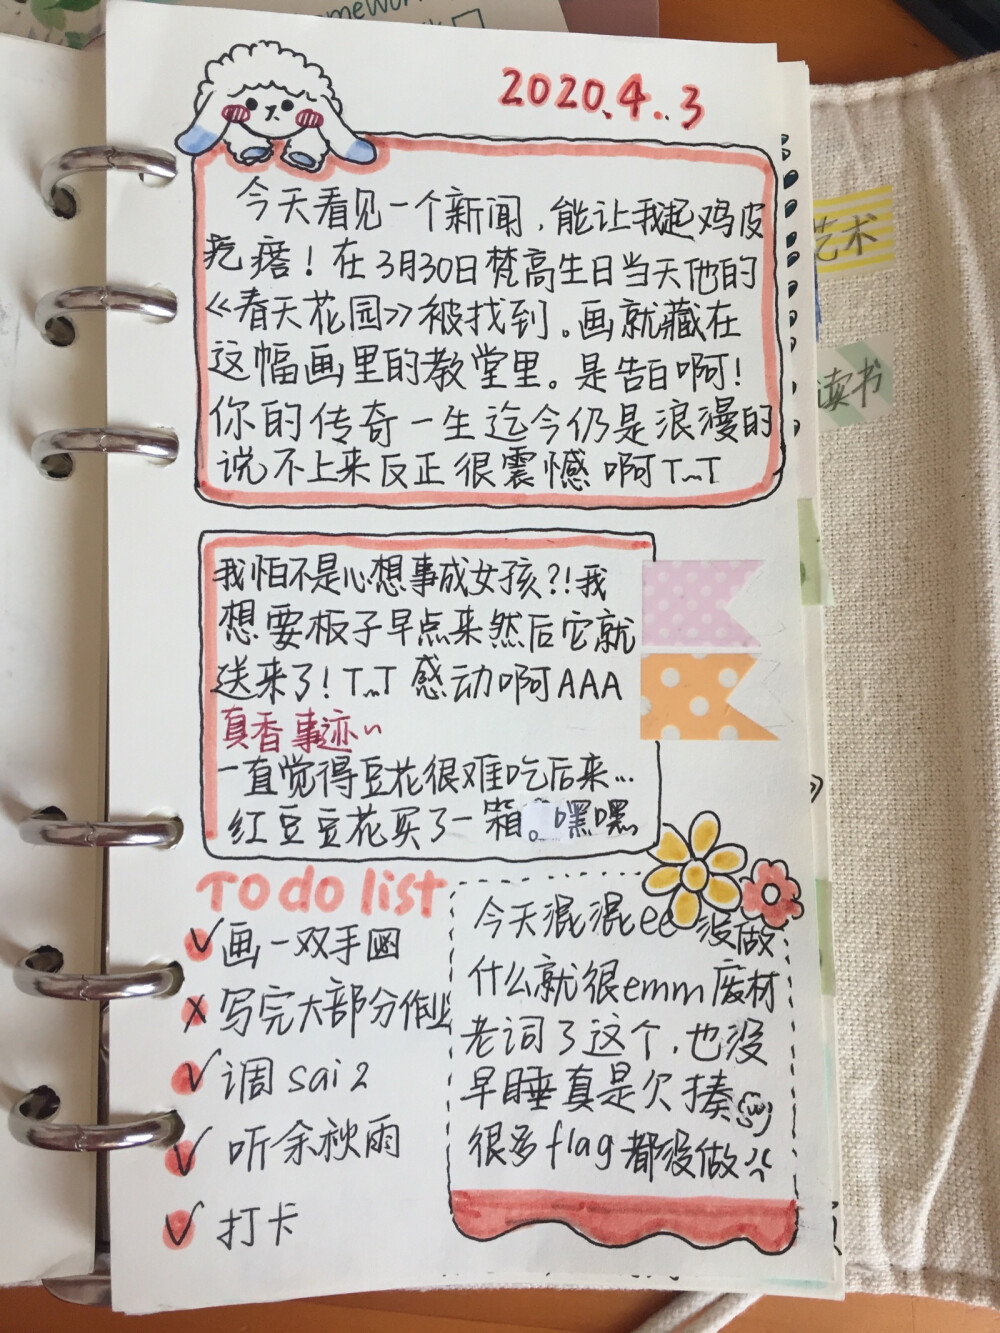 2020.4.3
今天看见一个新闻,能让我起鸡皮
疙瘩!在3月30日梵高生日当天他的
《春天花园》被找到。画就藏在
这幅画里的教堂里。是告白啊!
你的传奇一生迄今仍是浪漫的
说不上来反正很震憾啊T...T
我怕不是心想事成女孩?!我
想要板子早点来然后它就
送来了!T...T感动啊AAA
真香事迹~
一直觉得豆花很难吃后来...
红豆豆花买了一箱。嘿嘿
TO do list
✓画一双手
x写完大部分作业
✓调sai2
✓听余秋雨
✓打卡
今天混混ee没做
什么就很emm废材
老词了这个,也没
早睡真是欠揍
很多flag都没做
艺术
读书